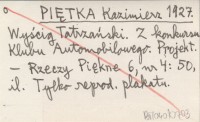 PIĘTKA Kazimierz 1927.
Wyścig Tatrzański. Z konkursu
Klubu Automobilowego. Projekt.
— Rzeczy Piękne 6, nr 4: 50,
il. Tylko reprod. plakatu.